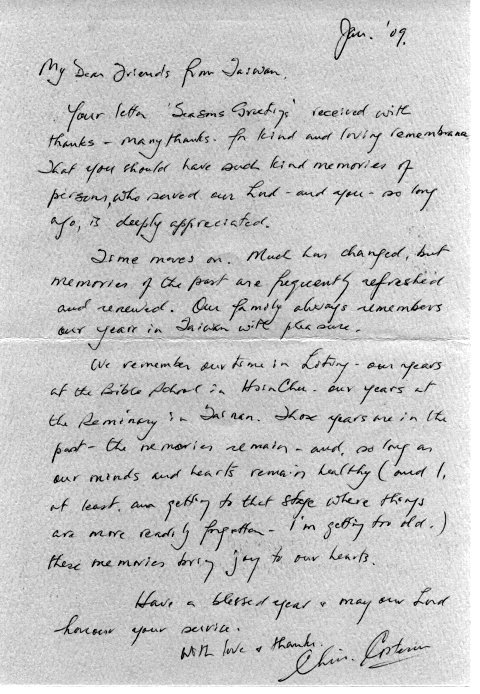 Jan. '09.
My Dear Friends from Taiwan,
Your letter 'Seasons Greetings' received with
thanks - many thanks - for kind and loving remembrance
That you should have such kind memories of
persons, who served our Lord - and you - so long
ago, is deeply appreciated.
Time moves on. Much has changed, but
memories of the past are frequently refreshed
and renewed. Our family always remembers
our years in Taiwan with pleasure.
We remember our time in - our years
at the Bible School in HsinChu - our years at
the Seminary in Tainan. Those years are in the
past - the memories remain - and, so long as
our minds and hearts remain healthy (and I,
at least, am getting to that stage where things
are more readily forgotten - I'm getting too old.)
these memories bring joy to our hearts.
Have a blessed year & may our Lord
honour your service.
With love & thanks.